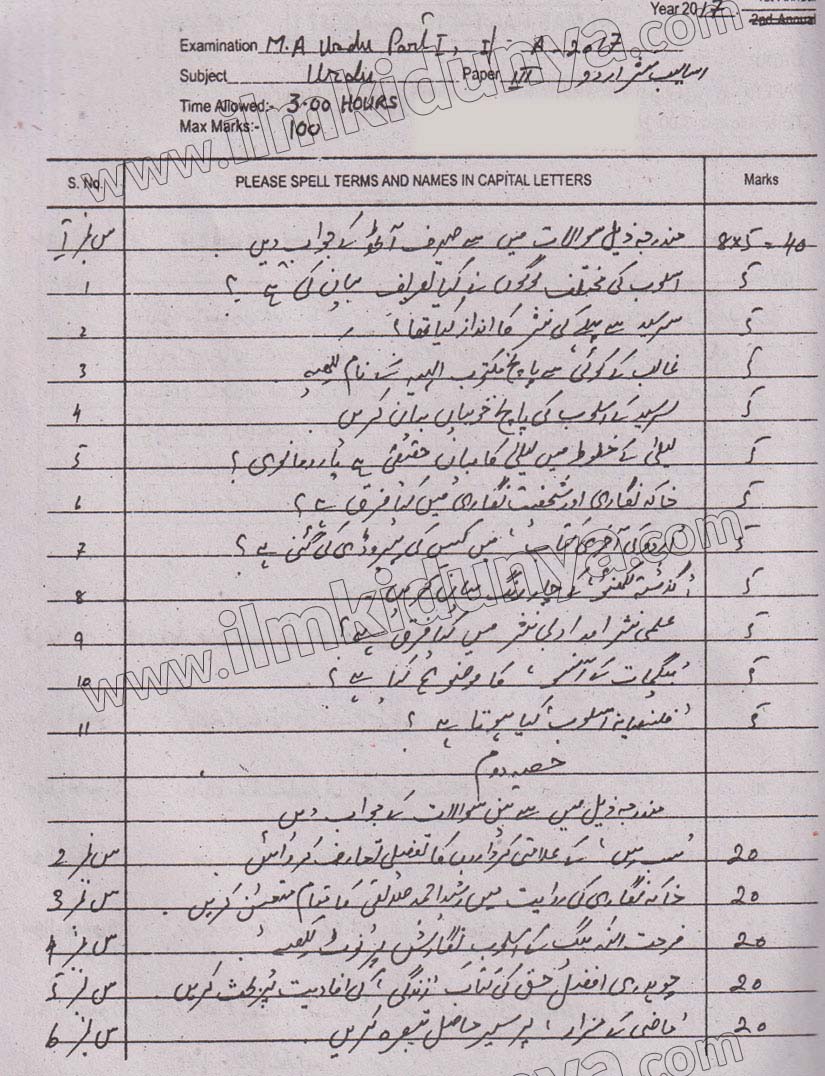 1st Annual
Year 2017 2nd Annual
Examination M.A Urdu Part I, I/- A-2017
Subject Urdu Paper III اسالیب نثر اردو
Time Allowed:- 3.00 HOURS
Max Marks:- 100
S. No. PLEASE SPELL TERMS AND NAMES IN CAPITAL LETTERS Marks
س نمبر 1 مندرجہ ذیل سوالات میں سے صرف آٹھ کے جواب دیں 8x5=40
1 اسلوب کی مختلف لوگوں نے کیا تعریف بیان کی ہے؟ 5
2 سرسید سے پہلے کی نثر کا انداز کیا تھا؟ 5
3 غالب کے کوئی سے پانچ مکتوب الیہ کے نام لکھیے 5
4 سرسید کے اسلوب کی پانچ خوبیاں بیان کریں 5
5 لیلیٰ کے خطوط میں لیلیٰ کا بیان حقیقی ہے یا رومانوی؟ 5
6 خاکہ نگاری اور شخصیت نگاری میں کیا فرق ہے؟ 5
7 اردو کی آخری کتاب، میں کس کی پیروڈی کی گئی ہے؟ 5
8 'گذشتہ لکھنؤ' کے چار رنگ بیان کریں 5
9 علمی نثر اور ادبی نثر میں کیا فرق ہے؟ 5
10 'بیگمات کے آنسو' کا موضوع کیا ہے؟ 5
11 'فلسفیانہ اسلوب' کیا ہوتا ہے؟ 5
حصہ دوم
مندرجہ ذیل میں سے تین سوالات کے جواب دیں
س نمبر 2 'سب رس' کے علامتی کرداروں کا تفصیلی تعارف کروائیں 20
س نمبر 3 خاکہ نگاری کی روایت میں رشید احمد صدیقی کا مقام متعین کریں 20
س نمبر 4 فرحت اللہ بیگ کے اسلوب نگارش پر نوٹ لکھیے 20
س نمبر 5 چوہدری افضل حق کی کتاب 'زندگی' کی افادیت پر بحث کریں 20
س نمبر 6 'ماضی کے مزار' پر سیر حاصل تبصرہ کریں 20
www.ilmkidunya.com
www.ilmkidunya.com
www.ilmkidunya.com